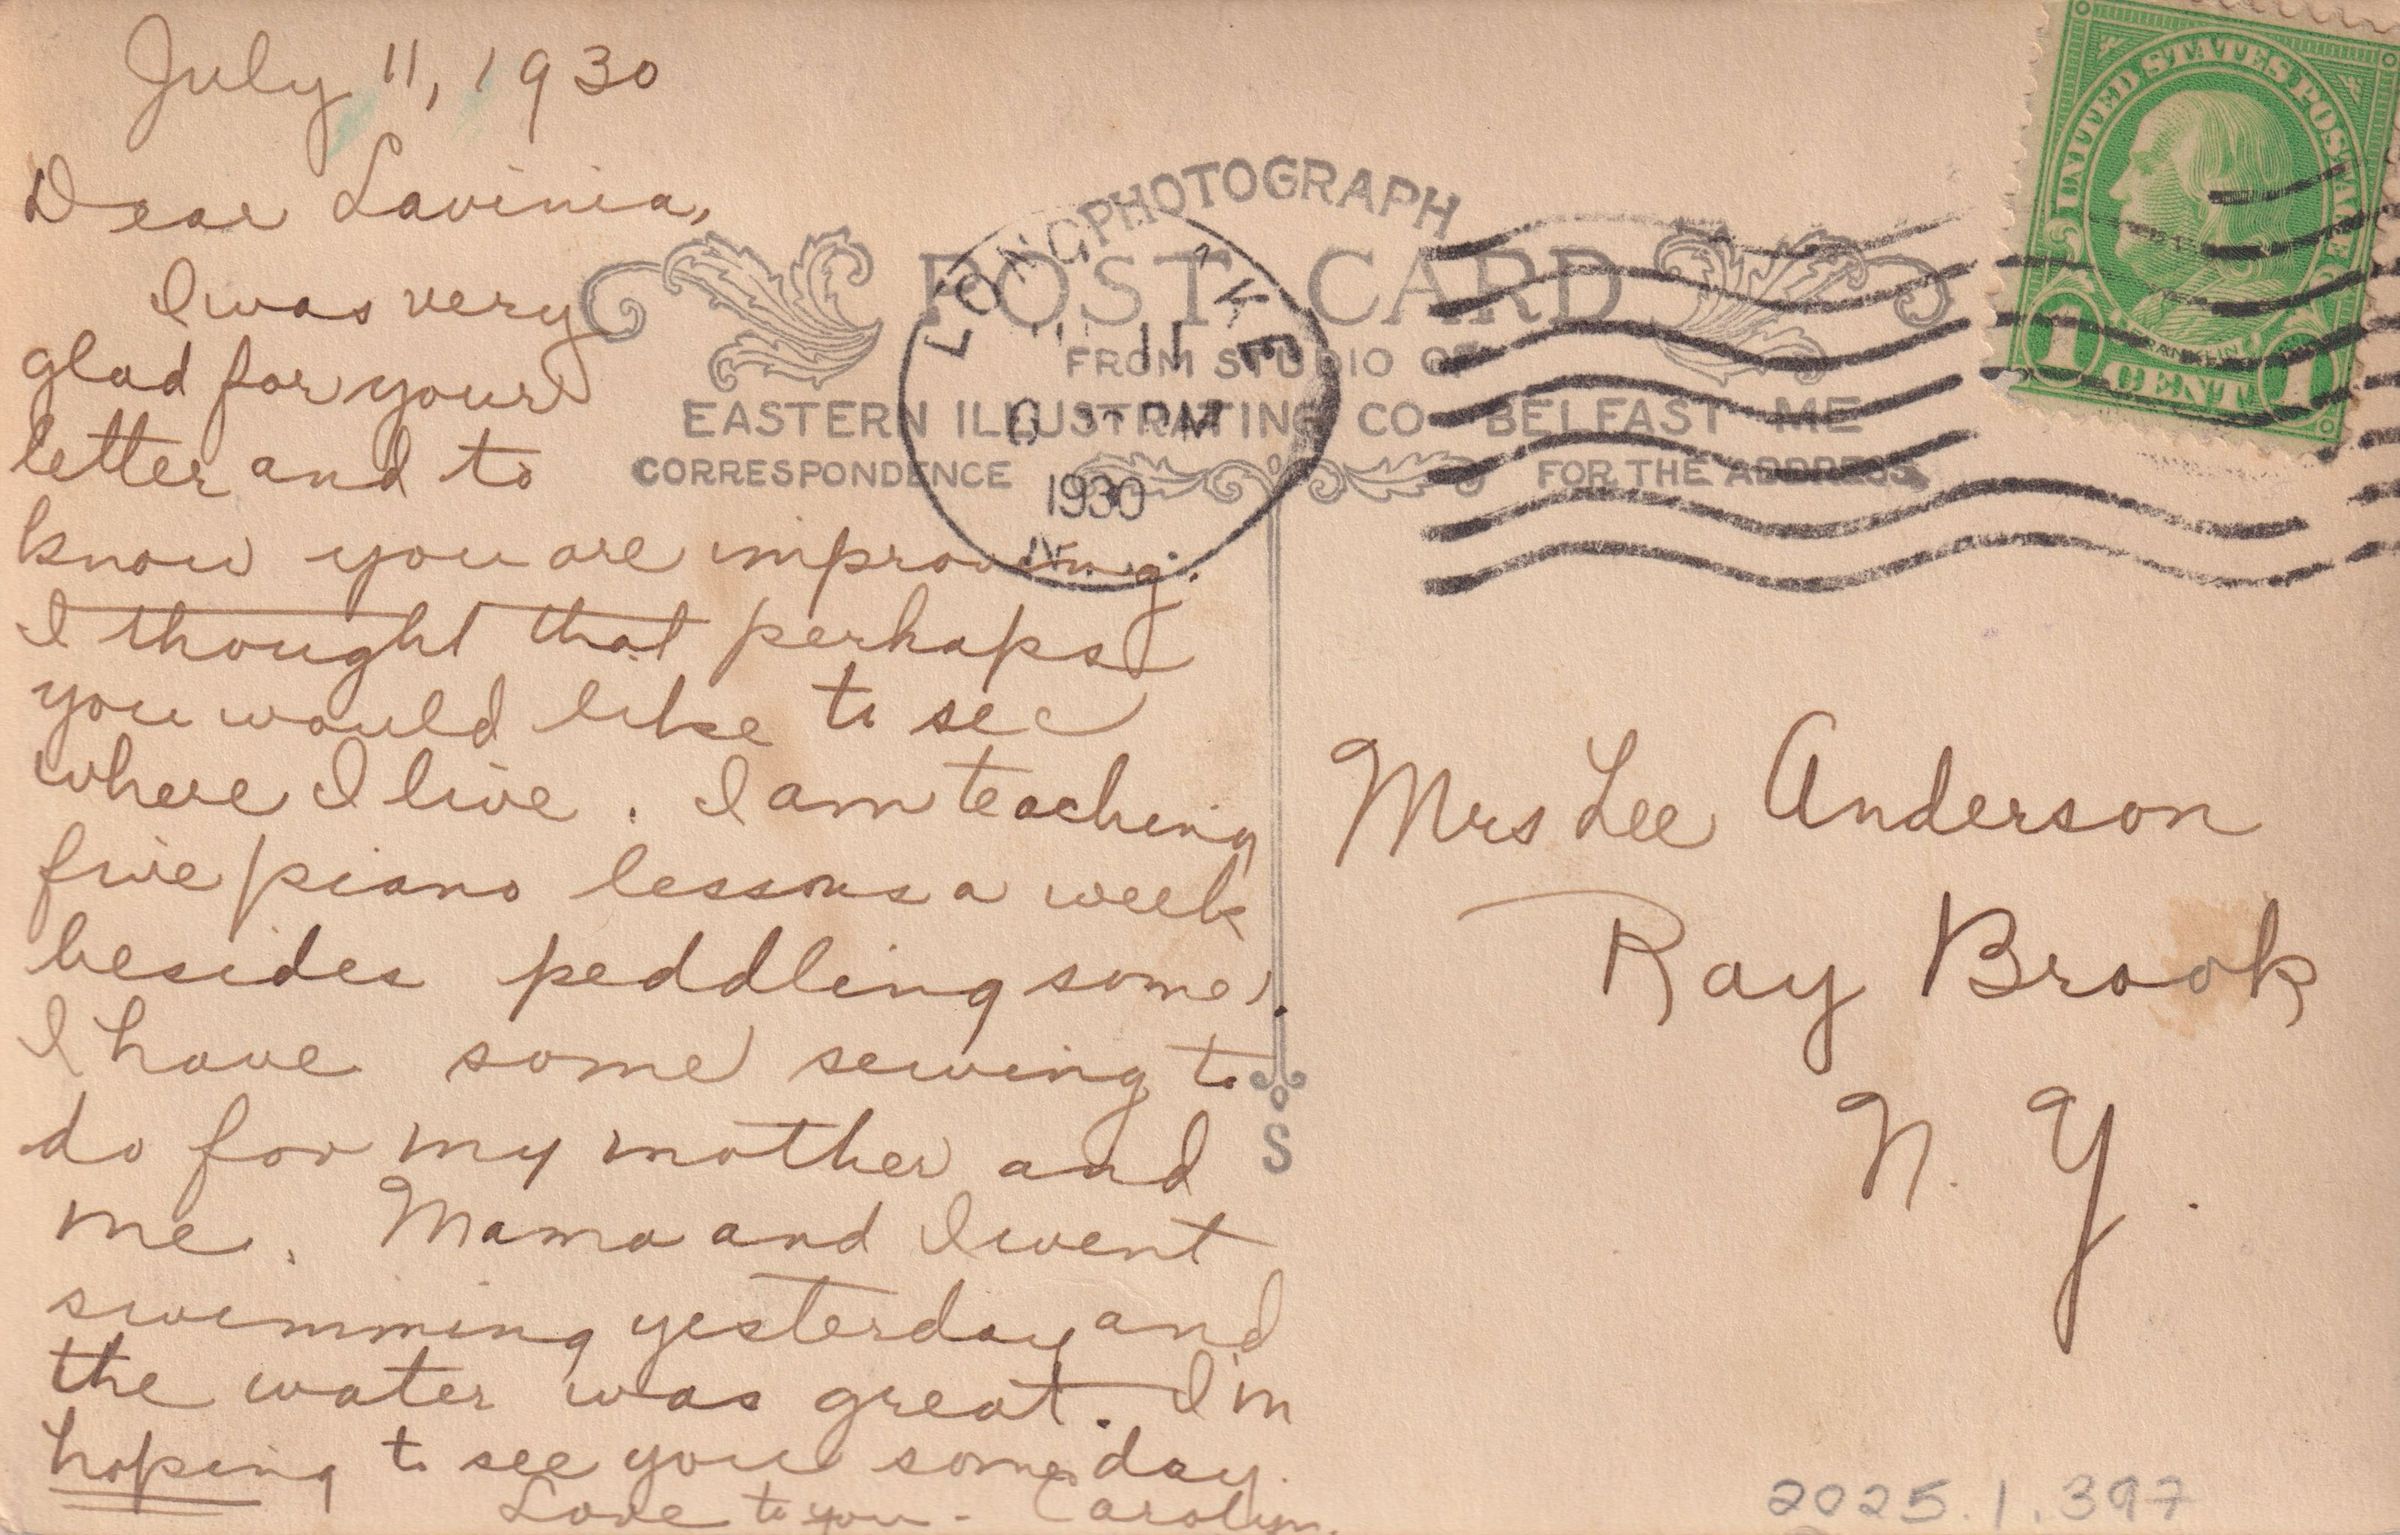 July 11, 1930
Dear Lavinia,
I was very
glad for your
letter and to
know you are improving.
I thought that perhaps
you would like to see
where I live. I am teaching
five piano lessons a week
besides peddling some.
I have some sewing to
do for my mother and
me. Mama and I went
swimming yesterday and
the water was great. I'm
hoping to see you some day.
Love to you - Carolyn.
PHOTOGRAPH
POST CARD
FROM STUDIO OF
EASTERN ILLUSTRATING CO BELFAST ME
CORRESPONDENCE
FOR THE ADDRESS
S
LONG
11
PM
1930
UNITED STATES POSTAGE
FRANKLIN
1 CENT 1
Mrs Lee Anderson
Ray Brook
N. Y.
2025.1.397